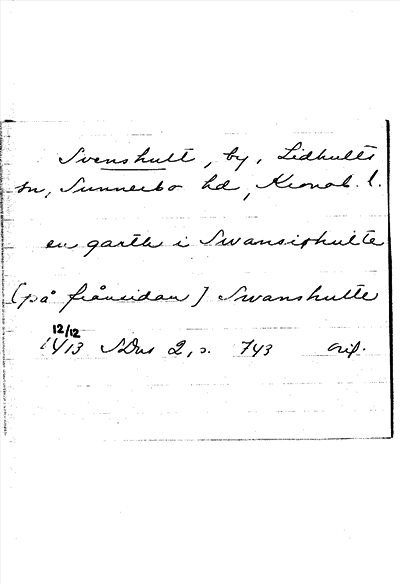 Svenshult, by, Lidhults
sn, Sunnerbo hd, Kronob. l.
en garth i Swansishulte
[på frånsidan] Swanshulte
12/12
1413 SDns 2, s. 743 orig.